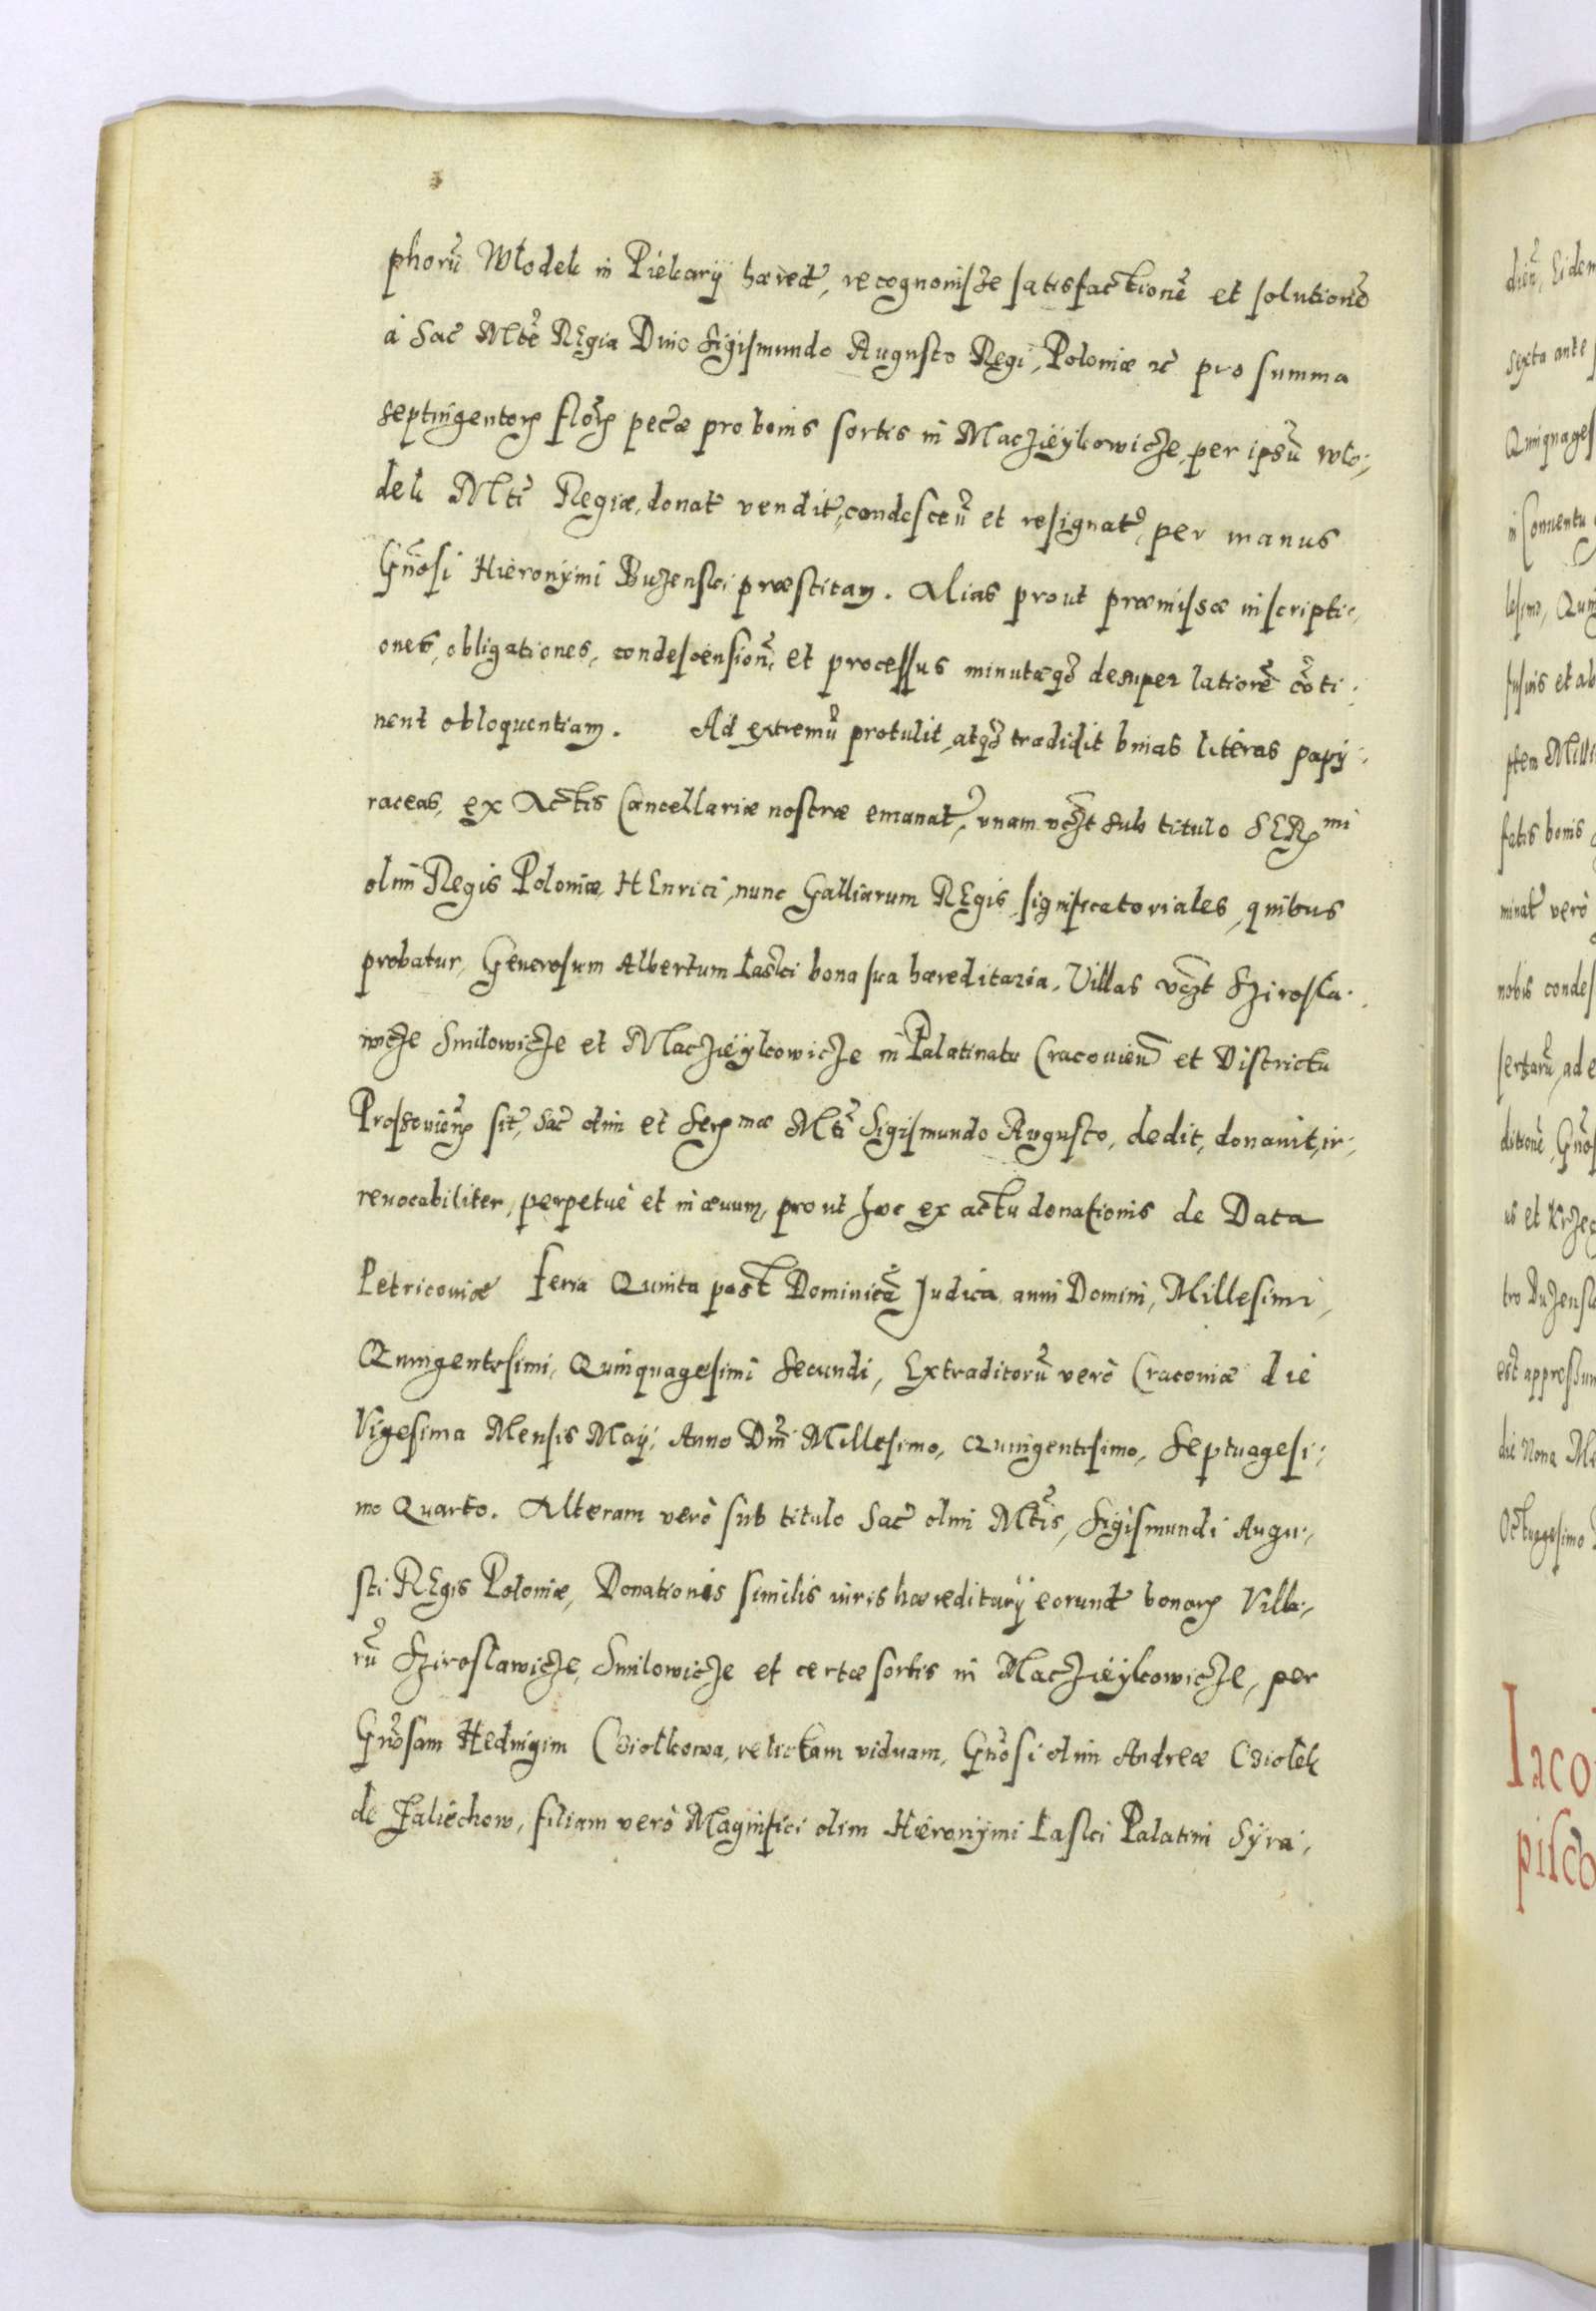 phorũ Włodek in Piekarÿ hæred̃, recognouisse satisfactionẽ et solutionẽ
à Sac̃ Mtẽ REgia Diuo Sigismundo Augusto Regi, Poloniæ &c̃ pro summa
septingentoꝝ floꝝ pec̃æ pro bonis sortis in Maczieÿkowicze, per ipsũ Wło,,
dek Mtĩ Regiæ, donat̃ vendit̃, condesceñ et resignat̃, per manus
Gñosi Hieronÿmi Buzenski præstitam. Alias prout præmissæ inscripti,,
ones, obligationes, condescensioñ, et processus minutæq̃ desuper latiorẽ cõti,,
nent obloquentiam. Ad extremũ protulit, atq̃ tradidit binas literas papÿ,,
raceas, ex Actis Cancellariæ nostræ emanat̃, vnam vcz̃t sub titulo SERmi
olim Regis Poloniæ HEnrici, nunc Galliarum REgis, significatoriales, quibus
probatur, Generosum Albertum Łaski bona sua hæreditaria, Villas vcz̃t Szirosła,,
wicze Smilowicze et Maczieÿkowicze in Palatinatu Cracouieñ et Districtu
Prossouieñ sit̃, Sac̃ olim et Serꝝmæ Mtĩ Sigismundo Augusto, dedit, donauit, ir,,
reuocabiliter, perpetuè et in æuum, prout hoc ex actu donationis de Data
Petricouiæ feria Quinta post Dominicã Judica anni Domini, Millesimi,
Quingentesimi, Quinquagesimi Secundi, Extraditorũ verò Cracouiæ die
Vigesima Mensis Maÿ, Anno Dñi Millesimo, Quingentesimo, Septuagesi,,
mo Quarto. Alteram verò sub titulo Sac̃ olim Mtĩs, Sigismundi Augu,,
sti REgis Poloniæ, Donationis similis iuris hæreditarÿ eorund̃ bonoꝝ Villa,,
rũ Sziroslawicze, Smilowicze et certæ sortis in Maczieÿkowicze, per
Gñosam Heduigim Ciolkowa, relictam viduam, Gñosi olim Andreæ Ciolek
de Zaliechow, filiam verò Magnifici olim Hieronÿmi Łaski Palatini Sÿra,,